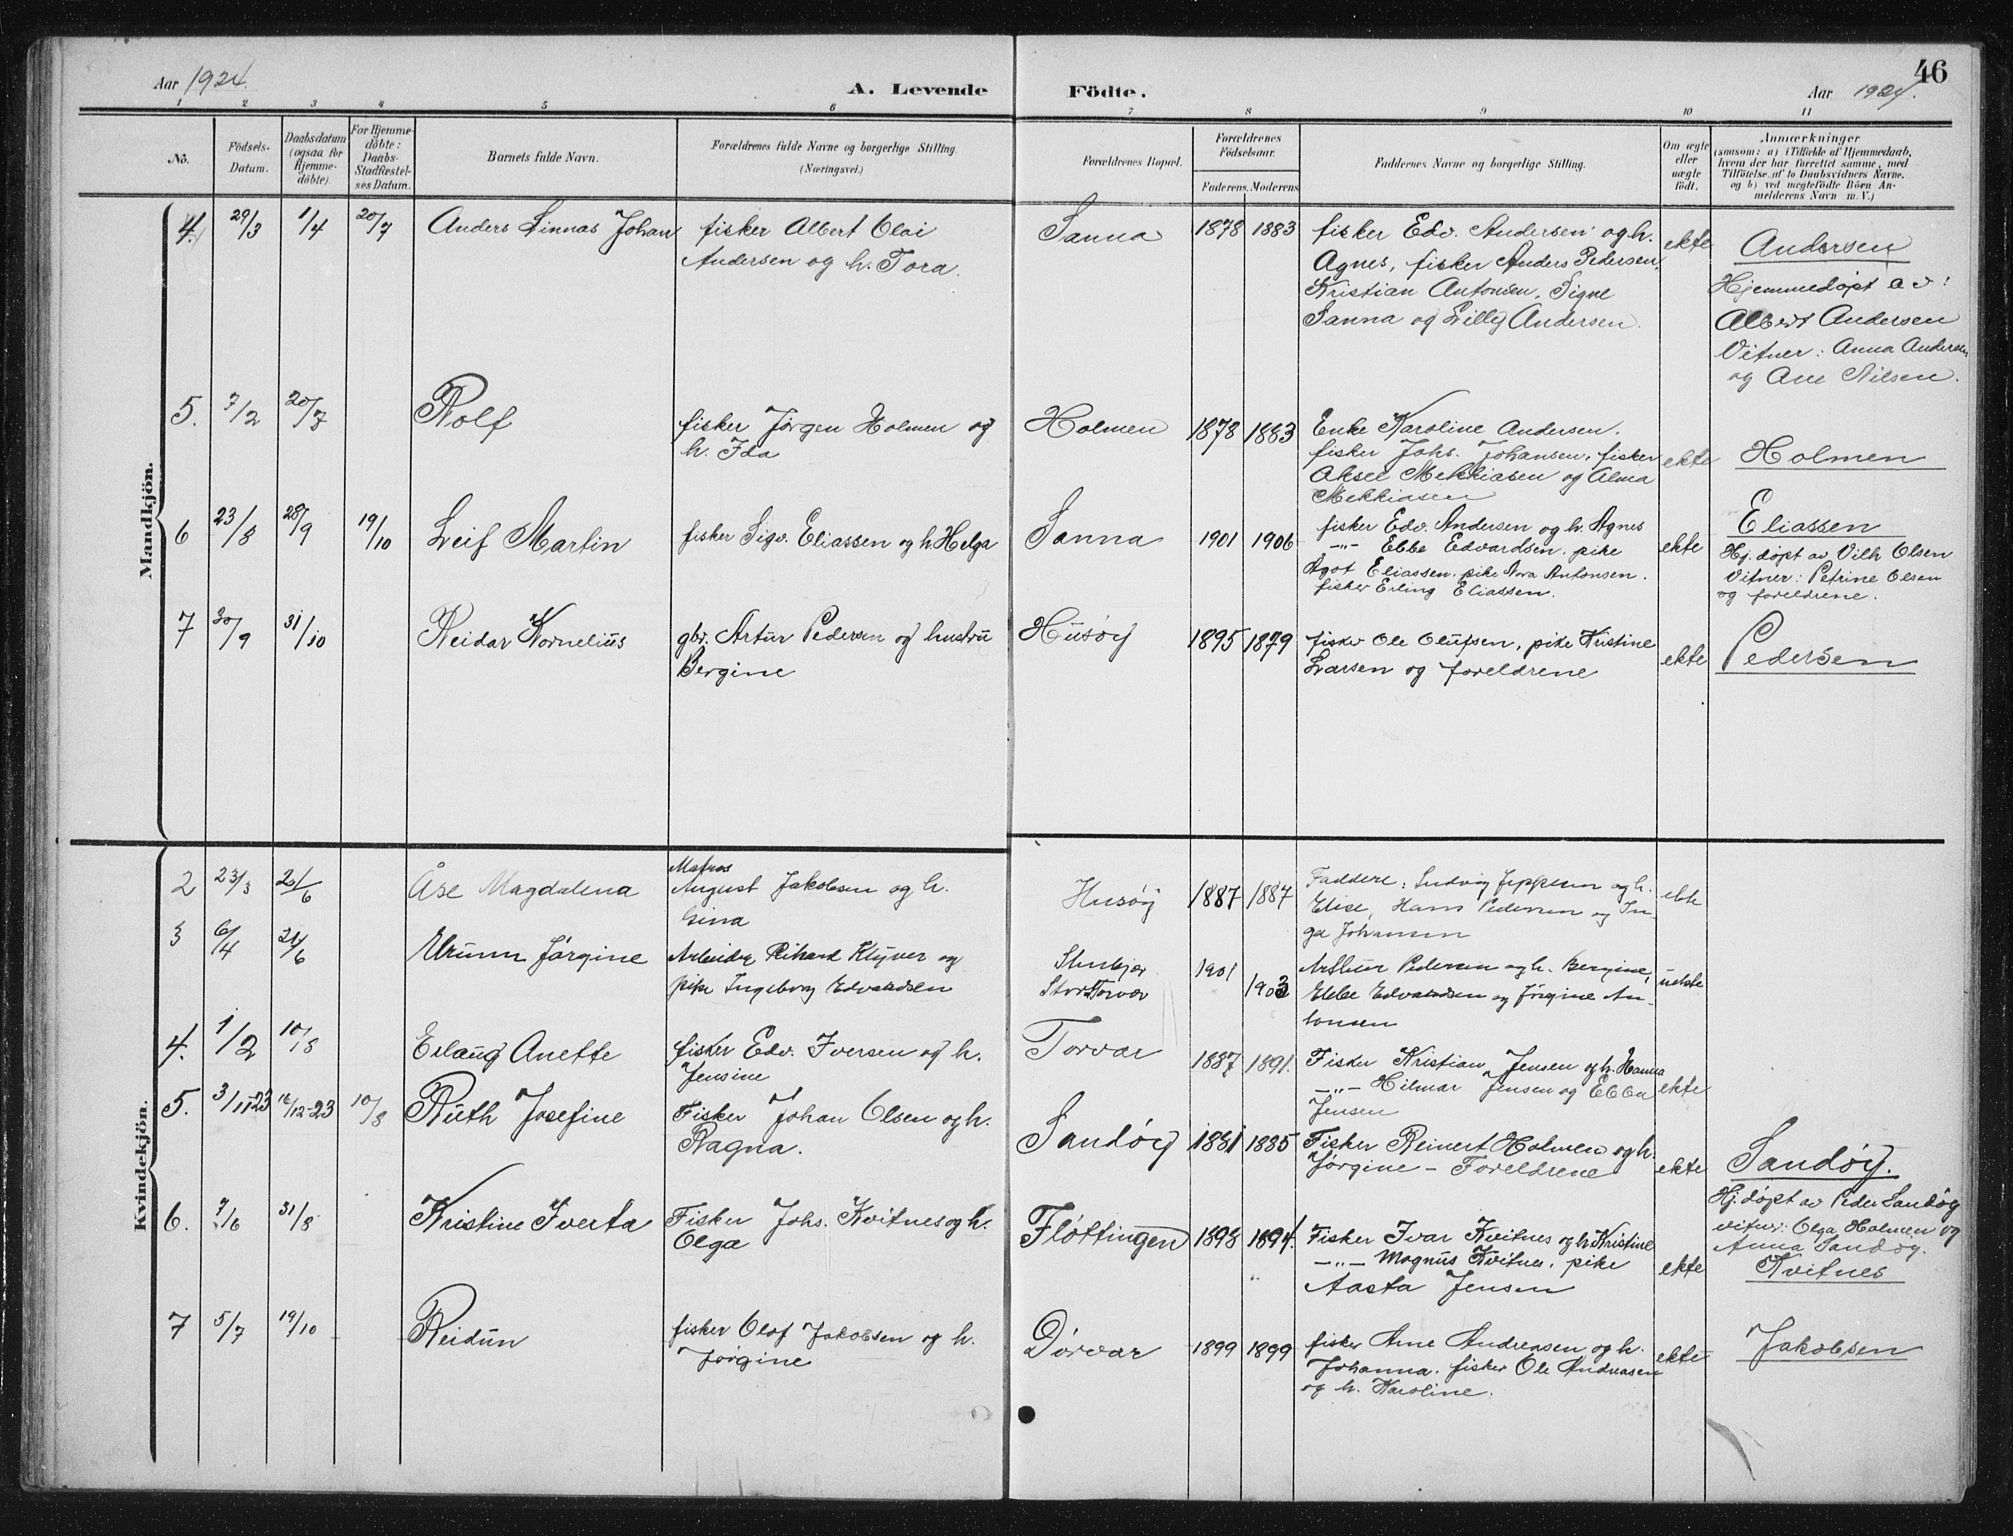 46
Aar 1924.
A. Levende
Födte.
Aar 1924.
1 2 3 4 5 6 7 8 9 10 11
No.
Födsels-
Datum.
Daabsdatum
(ogsaa for
Hjemme-
döbte).
For Hjemme-
döbte:
Daabs-
Stadfæstel-
ses Datum.
Barnets fulde Navn.
Forældrenes fulde Navne og borgerlige Stilling.
(Næringsvei.)
Forældrenes Bopæl.
Forældrenes
Födselsaar.
Faderens. Moderens.
Faddernes Navne og borgerlige Stilling.
Om ægte
eller
uægte
født.
Anmærkninger
(saasom: a) i Tilfælde af Hjemmedaab,
hvem der har forrettet samme, med
Tilföielse af to Daabsvidners Navne.
og b) ved uægtefödte Börn An-
melderens Navn m. V.)
Mandkjön.
4. 29/3 1/4 20/7 Anders Linnas Johan
fisker Albert Olai
Andersen og h. Tora.
Sanna 1878 1883
fisker Edv. Andersen og h.
Agnes, fisker Anders Pedersen,
Kristian Antonsen, Signe
Sanna og Lilly Andersen.
ekte
Andersen
Hjemmedøpt av:
Albert Andersen
Vitner: Anna Andersen
og Ane Nilsen.
5. 7/2 20/7 Rolf
fisker Jørgen Holmen og
h. Ida
Holmen 1878 1883
Enke Karoline Andersen.
fisker Johs. Johansen, fisker
Aksel Mekkiasen og Alma
Mekkiasen
ekte
Holmen
6 23/8 28/9 19/10 Leif Martin
fisker Sigv. Eliassen og h Helga
Sanna 1901 1906
fisker Edv. Andersen og h. Agnes
-"- Ebbe Edvardsen. pike
Agot Eliassen. pike Nora Antonsen.
fisker Erling Eliassen.
ekte
Eliassen
Hj. døpt av Vilh Olsen
Vitner: Petrine Olsen
og foreldrene.
7 30/9 31/10 Reidar Kornelius
gbr. Artur Pedersen og hustru
Bergine
Husøy 1895 1879
fisker Ole Olufsen, pike Kristine
Larsen og foreldrene
ekte
Pedersen
Kvindekjön.
2 23/3 /6 Åse Magdalena
Matros
August Jakobsen og h.
Gina
Husøy 1887 1887
Faddere: Ludvig Jeppesen og h.
Elise, Hans Pedersen og In-
ga Johansen
ekte
3 6/4 /6 Jørgine
Arbeider Rikard Klyver og
pike Ingeborg Edvardsen
Torvær
1901 1903
Arthur Pedersen og h. Bergine,
Ebbe Edvardsen og Jørgine An-
tonsen
uekte
4. 1/2 10/8 Erlaug Anette
fisker Edv. Iversen og h.
Jensine
Torvær 1887 1891.
Fisker Kristian Jensen og h. Hanna
-"- Hilmar Jensen og Ebba
Jensen
ekte
5. 3/11-23 16/12-23 10/8 Ruth Josefine
Fisker Johan Olsen og h.
Ragna.
Sandøy 1881 1885
Fisker Reinert Holmen og h.
Jørgine - Foreldrene
ekte
Sandøy.
Hj. døpt av Peder Sandøy
vitner: Olga Holmen og
Anna Sandøy.
6. 7/6 31/8 Kristine Iverta
Fisker Johs. Kvitnes og h.
Olga
Fløttingen 1898 1894.
Fisker Ivar Kvitnes og h Kristine
-"- Magnus Kvitnes, pike
Aasta Jensen
ekte
Kvitnes
7 5/7 19/10 Reidun
fisker Olaf Jakobsen og h.
Jørgine
Dørvær 1899 1899
fisker Arne Andreasen og h.
Johanna. fisker Ole Andreasen
og h. Karoline.
ekte
Jakobsen